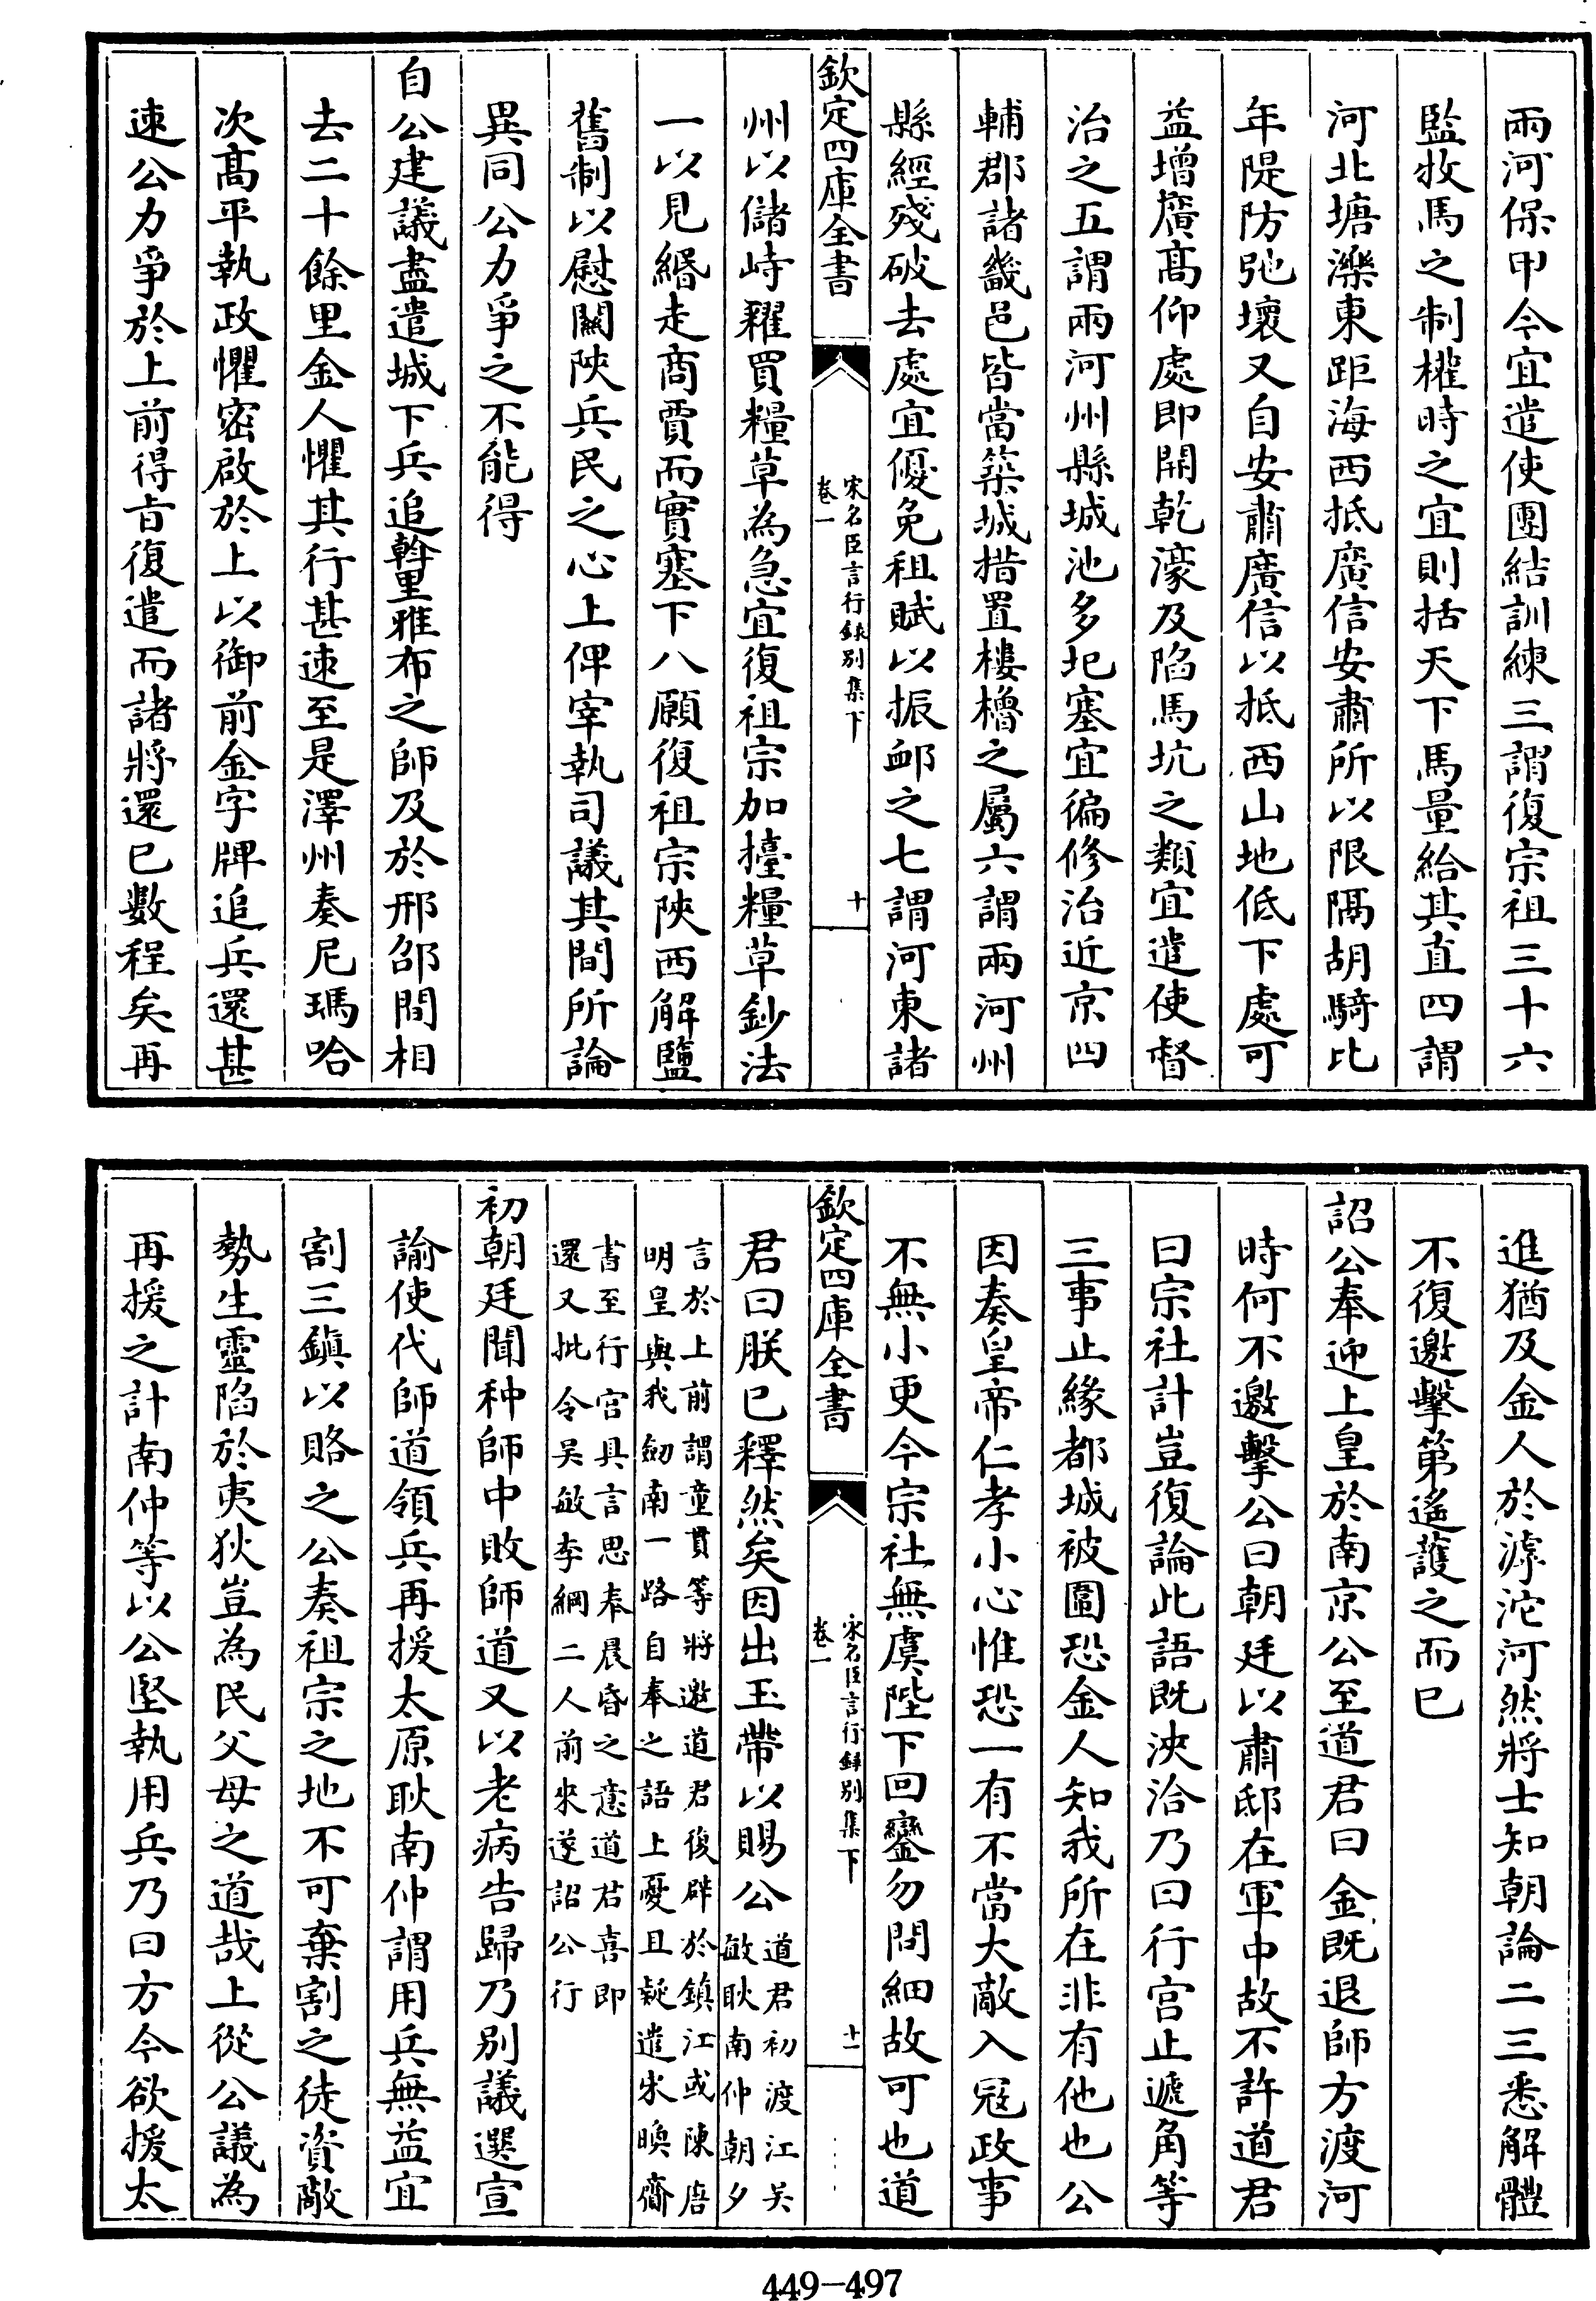 兩河保甲今宜遣使團結訓練三謂復宗祖三十六
監牧馬之制權時之宜則括天下馬量給其直四謂
河北塘濼東距海西抵廣信安肅所以限隔胡騎比
年隄防弛壞又自安肅廣信以抵西山地低下處可
益增廣髙仰處即開乾濠及陷馬坑之類宜遣使督
治之五謂兩河州縣城池多圮塞宜徧修治近京四
輔郡諸畿邑皆當築城措置樓櫓之屬六謂兩河州
縣經殘破去處宜優免租賦以振䘏之七謂河東諸
欽定四庫全書
宋名臣言行録別集下
卷一
十
州以儲峙糴買糧草為急宜復祖宗加擡糧草鈔法
一以見緡走商賈而實塞下八願復祖宗陜西解鹽
舊制以慰關陜兵民之心上俾宰執司議其間所論
異同公力爭之不能得
自公建議盡遣城下兵追斡里雅布之師及於邢邵間相
去二十餘里金人懼其行甚速至是澤州奏尼瑪哈
次髙平執政懼密啟於上以御前金字牌追兵還甚
速公力爭於上前得㫖復遣而諸將還已數程矣再
進猶及金人於滹沱河然將士知朝論二三悉解體
不復邀擊第遙護之而已
詔公奉迎上皇於南京公至道君曰金既退師方渡河
時何不邀擊公曰朝廷以肅邸在軍中故不許道君
曰宗社計豈復論此語既浹洽乃曰行宫止遞角等
三事止緣都城被圍恐金人知我所在非有他也公
因奏皇帝仁孝小心惟恐一有不當大敵入冦政事
不無小更今宗社無虞陛下回鑾勿問細故可也道
欽定四庫全書
宋名臣言行録別集下
卷一
十一
君曰朕已釋然矣因出玉帶以賜公道君初渡江吳
敏耿南仲朝夕
言於上前謂童貫等將邀道君復辟於鎮江或陳唐
明皇與我劒南一路自奉之語上憂且疑遣宋㬇齎
書至行宫具言思奉晨昏之意道君喜即
還又批令吴敏李綱二人前來遂詔公行
初朝廷聞种師中敗師道又以老病告歸乃別議選宣
諭使代師道領兵再援太原耿南仲謂用兵無益宜
割三鎮以賂之公奏祖宗之地不可棄割之徒資敵
勢生靈陷於夷狄豈為民父母之道哉上從公議為
再援之計南仲等以公堅執用兵乃曰方今欲援太
449-497